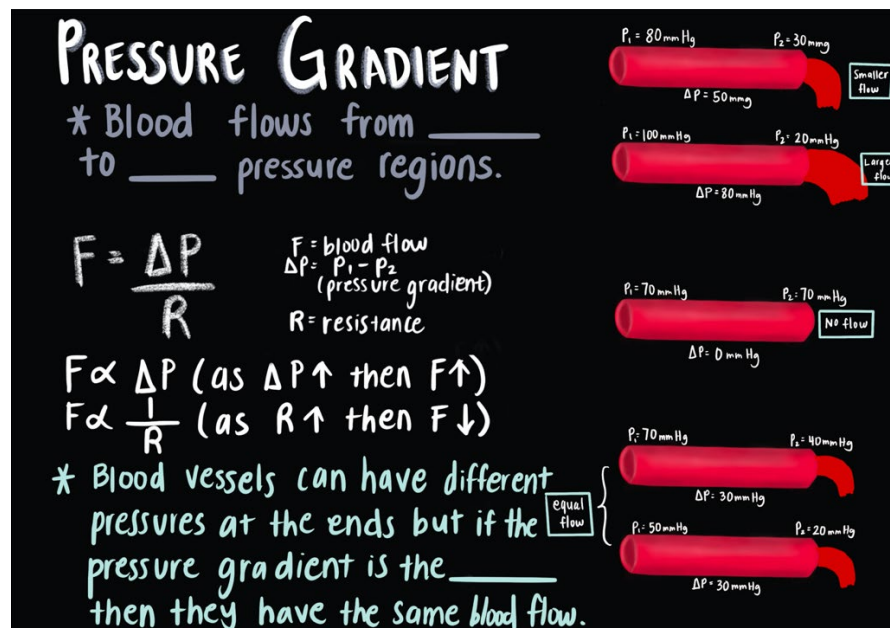 PRESSURE GRADIENT
* Blood flows from ______
to ____ pressure regions.
F = ΔP
R
F = blood flow
ΔP = P₁ - P₂
(pressure gradient)
R = resistance
F ∝ ΔP (as ΔP↑ then F↑)
F ∝ 1/R (as R↑ then F↓)
* Blood vessels can have different
pressures at the ends but if the
pressure gradient is the ______
then they have the same blood flow.
P₁ = 80 mmHg
P₂ = 30 mmg
ΔP = 50 mmg
Smaller
flow
P₁ = 100 mmHg
P₂ = 20 mmHg
ΔP = 80 mmHg
Large
flow
P₁ = 70 mmHg
P₂ = 70 mmHg
ΔP = 0 mmHg
No flow
equal
flow
P₁ = 70 mmHg
P₂ = 40 mmHg
ΔP = 30 mmHg
P₁ = 50 mmHg
P₂ = 20 mmHg
ΔP = 30 mmHg